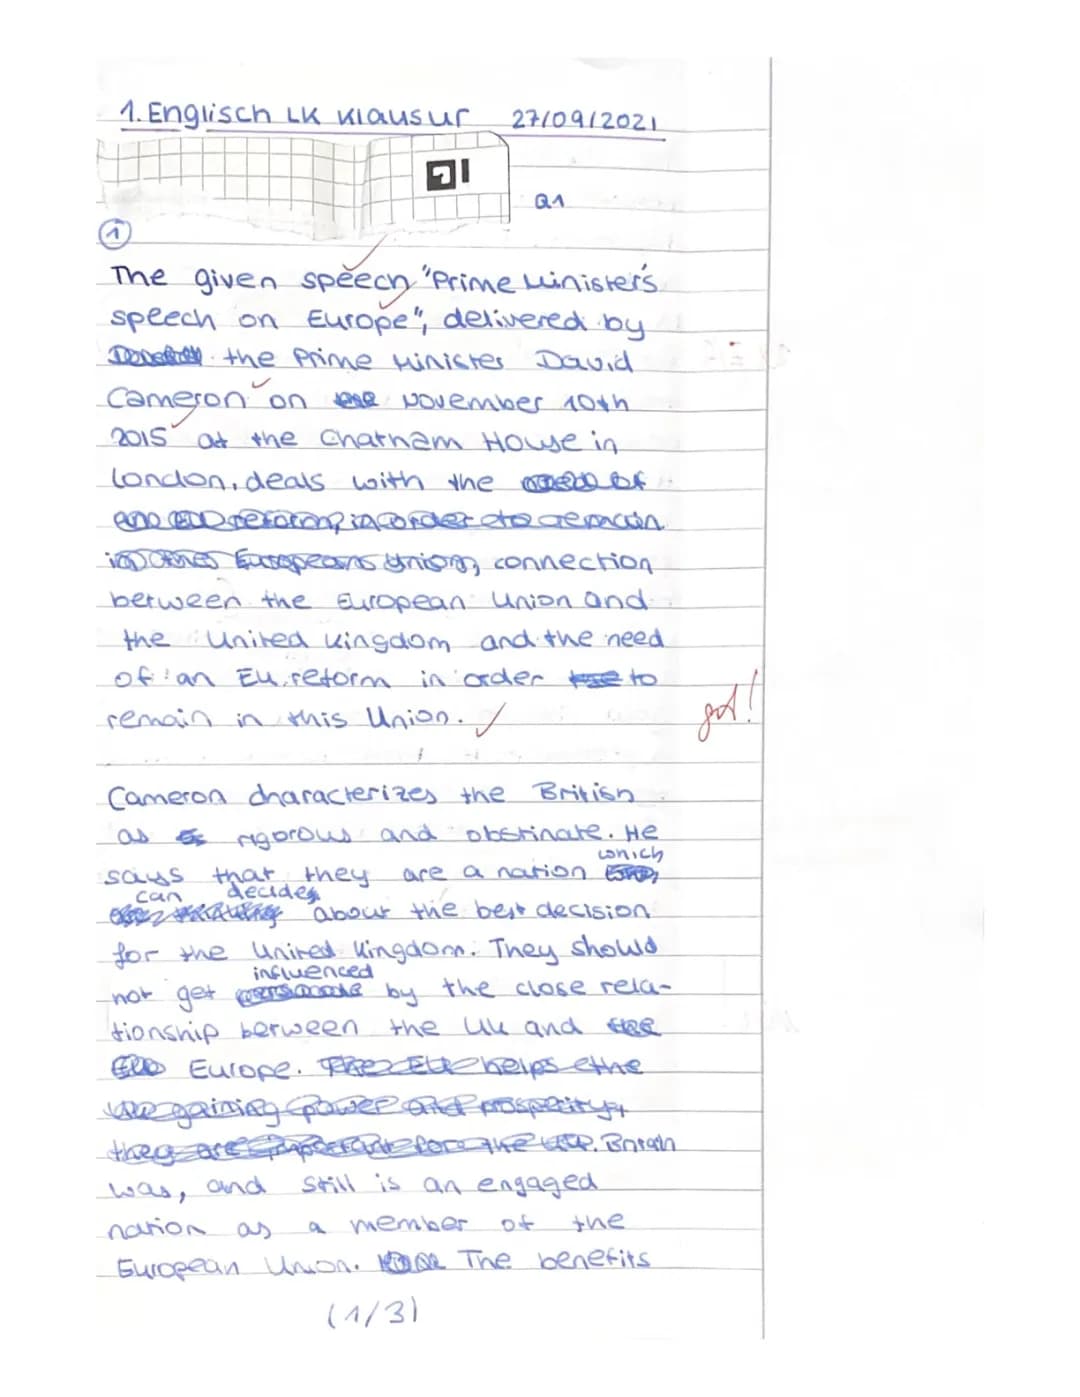 1. Englisch LK Klausur 27/09/2021
Q1
1
The given speech "Prime Minister's
speech on Europe", delivered by
the Prime Minister David
Cameron on November 10th
2015 at the Chatham House in
London, deals with the
connection
between the European Union and
the United Kingdom and the need
of an EU reform in order to
remain in this Union.
gut!
Cameron characterizes the British
as rigorous and obstinate. He
says that they are a nation which
can decides about the best decision
for the United Kingdom. They should
not get influenced by the close rela-
tionship between the UK and
Europe.
British
was, and still is an engaged
nation as a member of the
European Union. The benefits
(1/3)